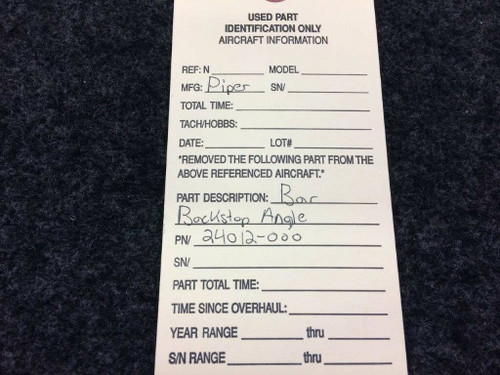 USED PART
IDENTIFICATION ONLY
AIRCRAFT INFORMATION
REF: N MODEL
MFG: Piper SN/
TOTAL TIME:
TACH/HOBBS:
DATE: LOT#
"REMOVED THE FOLLOWING PART FROM THE
ABOVE REFERENCED AIRCRAFT."
PART DESCRIPTION: Bar
Backstop Angle
PN/ 24012-000
SN/
PART TOTAL TIME:
TIME SINCE OVERHAUL:
YEAR RANGE thru
S/N RANGE thru